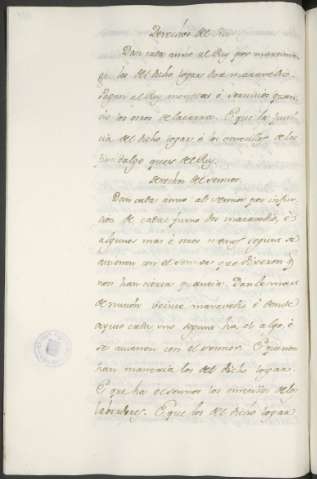 Derechos del Rey
Dan cada anno al Rey por martiniega los del dicho logar maravedis.
Pagan al Rey monedas è servicios quando los otros de la tierra. E que la justicia del dicho logar è los omecillos de los fijosdalgo que es del Rey.
Derechos del sennor.
Dan cada anno al sennor por infurcion de cada fumo dos maravedis, è
algunos mas è otros menos segunt se
avienen con el sennor que
non han cierta quantia. Dan le mas
de nuncion veinte maravedis è donde
ayuso cada uno segunt ha el algo, è
se avienen con el sennor. E que non
han mannería los del dicho logar.
E que ha el sennor los omecillos de los
labradores. E que los del dicho logar